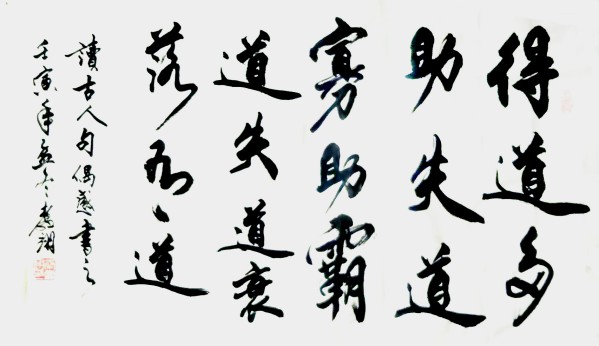 得道多
助失道
寡助霸
道失道衰
落道
讀古人句偶感書之
壬寅年孟冬